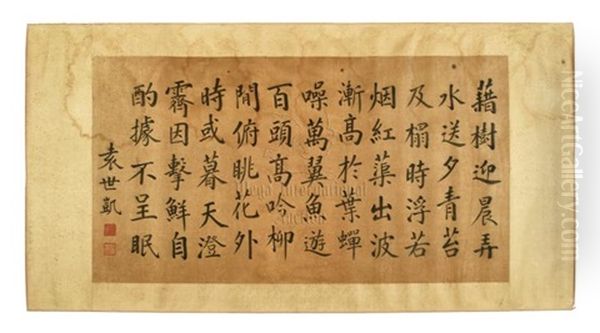 藉樹迎晨弄
水送夕青苔
及榻時浮若
烟紅蕖出波
漸髙於葉蟬
噪萬翼魚遊
百頭髙吟柳
間俯眺花外
時或暮天澄
霽因擊鮮自
酌據不呈眠
袁世凱
Mega International
Auction
NiceArtGallery.com